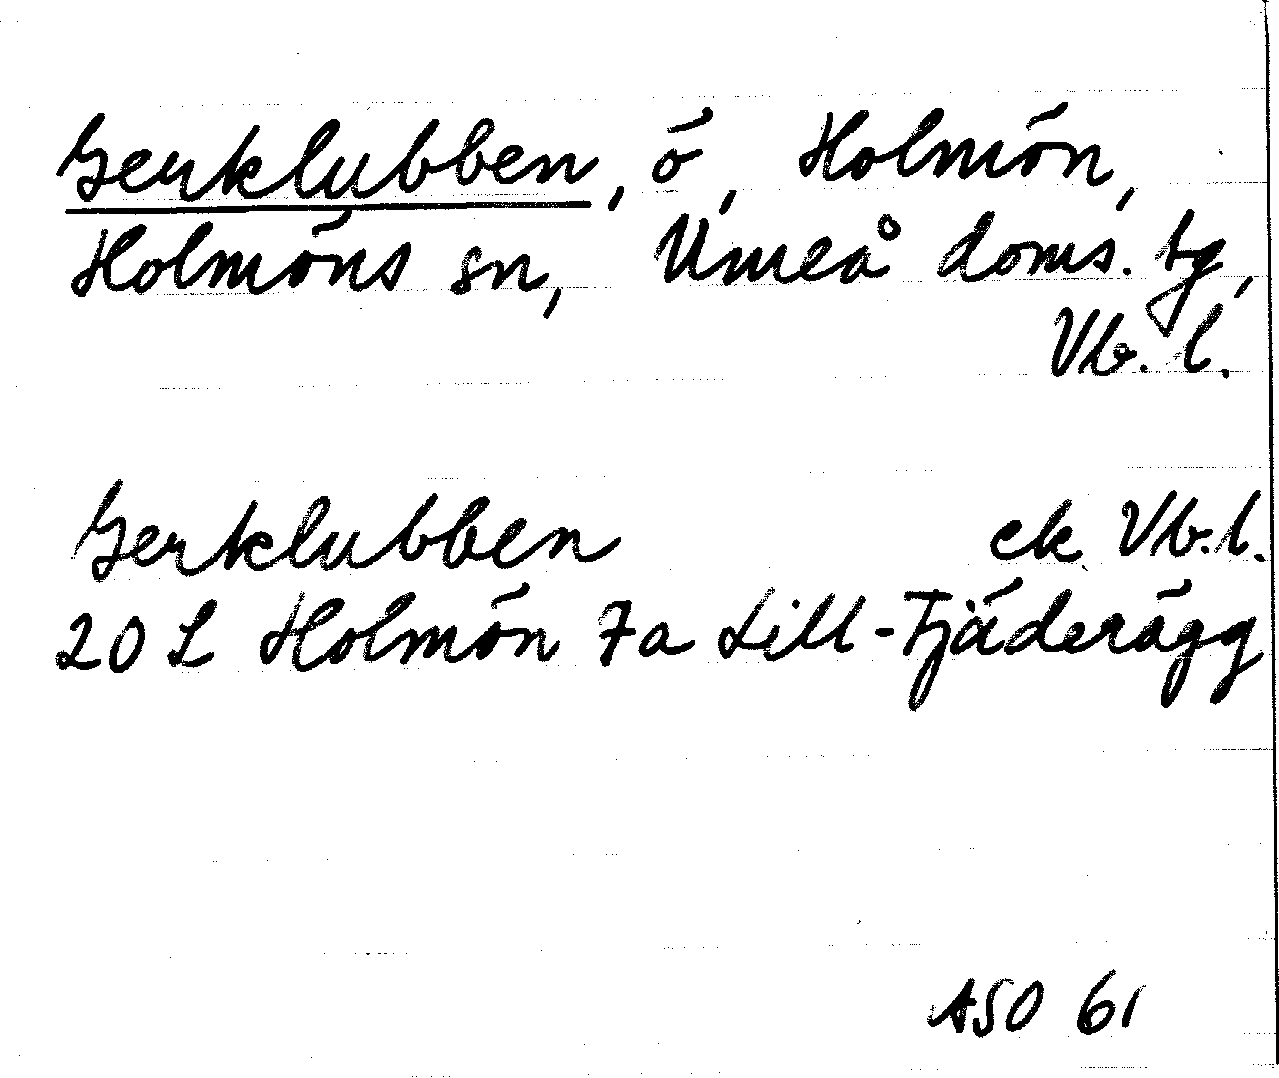 Gerklubben, ö, Holmön,
Holmöns sn, Umeå doms. tg,
Vb. l.
Gerklubben ek Vb. l.
20 L Holmön 7a Lill-Fjäderägg
ASO 61